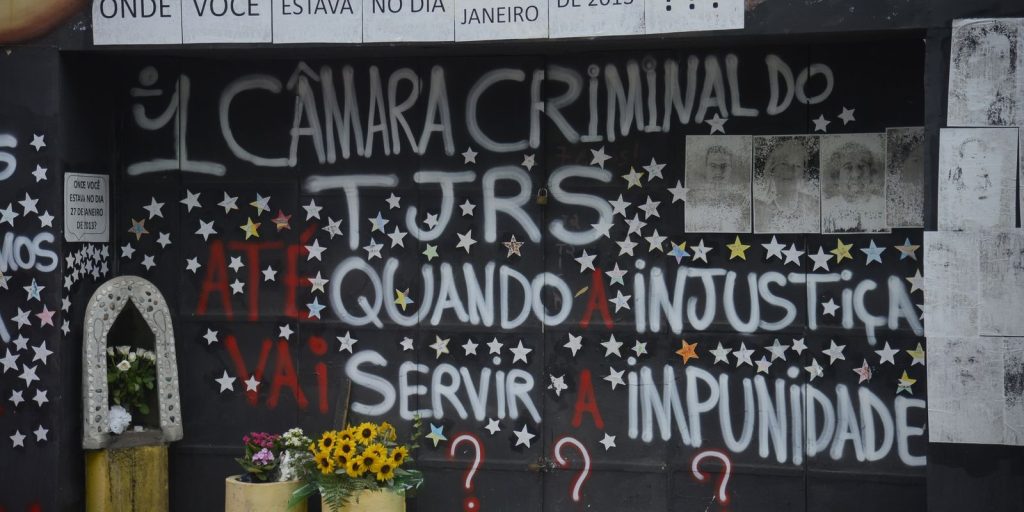 ONDE VOCÊ ESTAVA NO DIA
JANEIRO DE 2013 ???
1 CÂMARA CRIMINAL DO
TJRS
ATÉ QUANDO A INJUSTIÇA
VAI SERVIR A IMPUNIDADE
? ? ?
ONDE VOCÊ
ESTAVA NO DIA
27 DE JANEIRO
DE 2013?
S
MOS
A